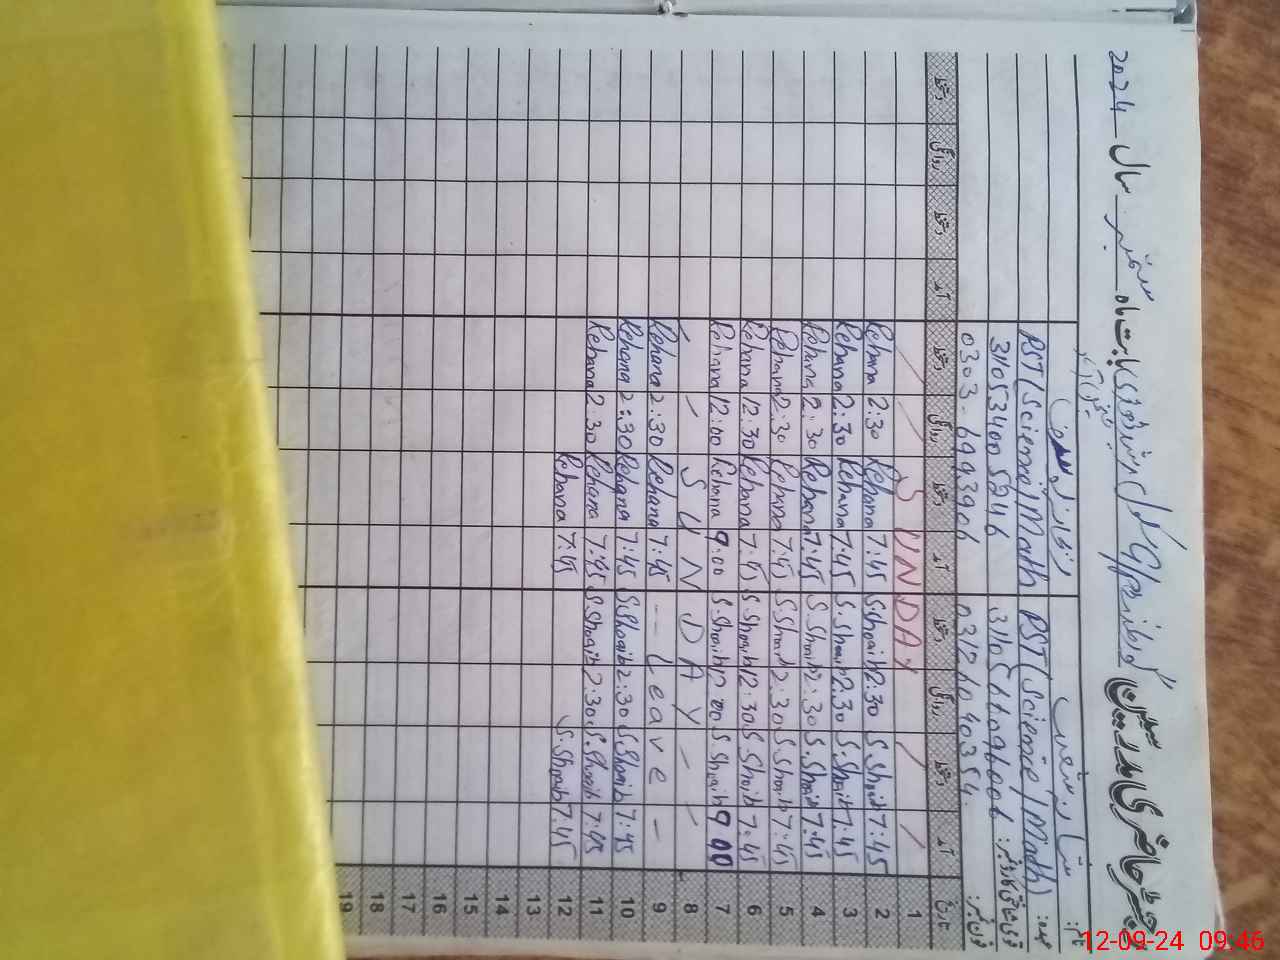 رجسٹر حاضری مدرسین گورنمنٹ گرلز
بابت ماہ ستمبر سال 2024
نام:
عہدہ: PST (Science/Math) PST (Science/Math)
قومی شناختی کارڈ نمبر: 31105
فون نمبر: 0303-6993906
تاریخ آمد دستخط روانگی دستخط آمد دستخط روانگی دستخط آمد دستخط روانگی دستخط
1 SUNDAY
2 7:45 S.Shoaib 2:30 S.Shoaib 7:45 Rehana 2:30 Rehana
3 7:45 S.Shoaib 2:30 S.Shoaib 7:45 Rehana 2:30 Rehana
4 7:45 S.Shoaib 2:30 S.Shoaib 7:45 Rehana 2:30 Rehana
5 7:45 S.Shoaib 2:30 S.Shoaib 7:45 Rehana 2:30 Rehana
6 7:45 S.Shoaib 12:30 S.Shoaib 7:45 Rehana 12:30 Rehana
7 9:00 S.Shoaib 12:00 S.Shoaib 9:00 Rehana 12:00 Rehana
8 SUNDAY
9 Leave 7:45 Rehana 2:30 Rehana
10 7:45 S.Shoaib 2:30 S.Shoaib 7:45 Rehana 2:30 Rehana
11 7:45 S.Shoaib 2:30 S.Shoaib 7:45 Rehana 2:30 Rehana
12 7:45 S.Shoaib 7:45 Rehana
13
14
15
16
17
18
19
12-09-24 09:46